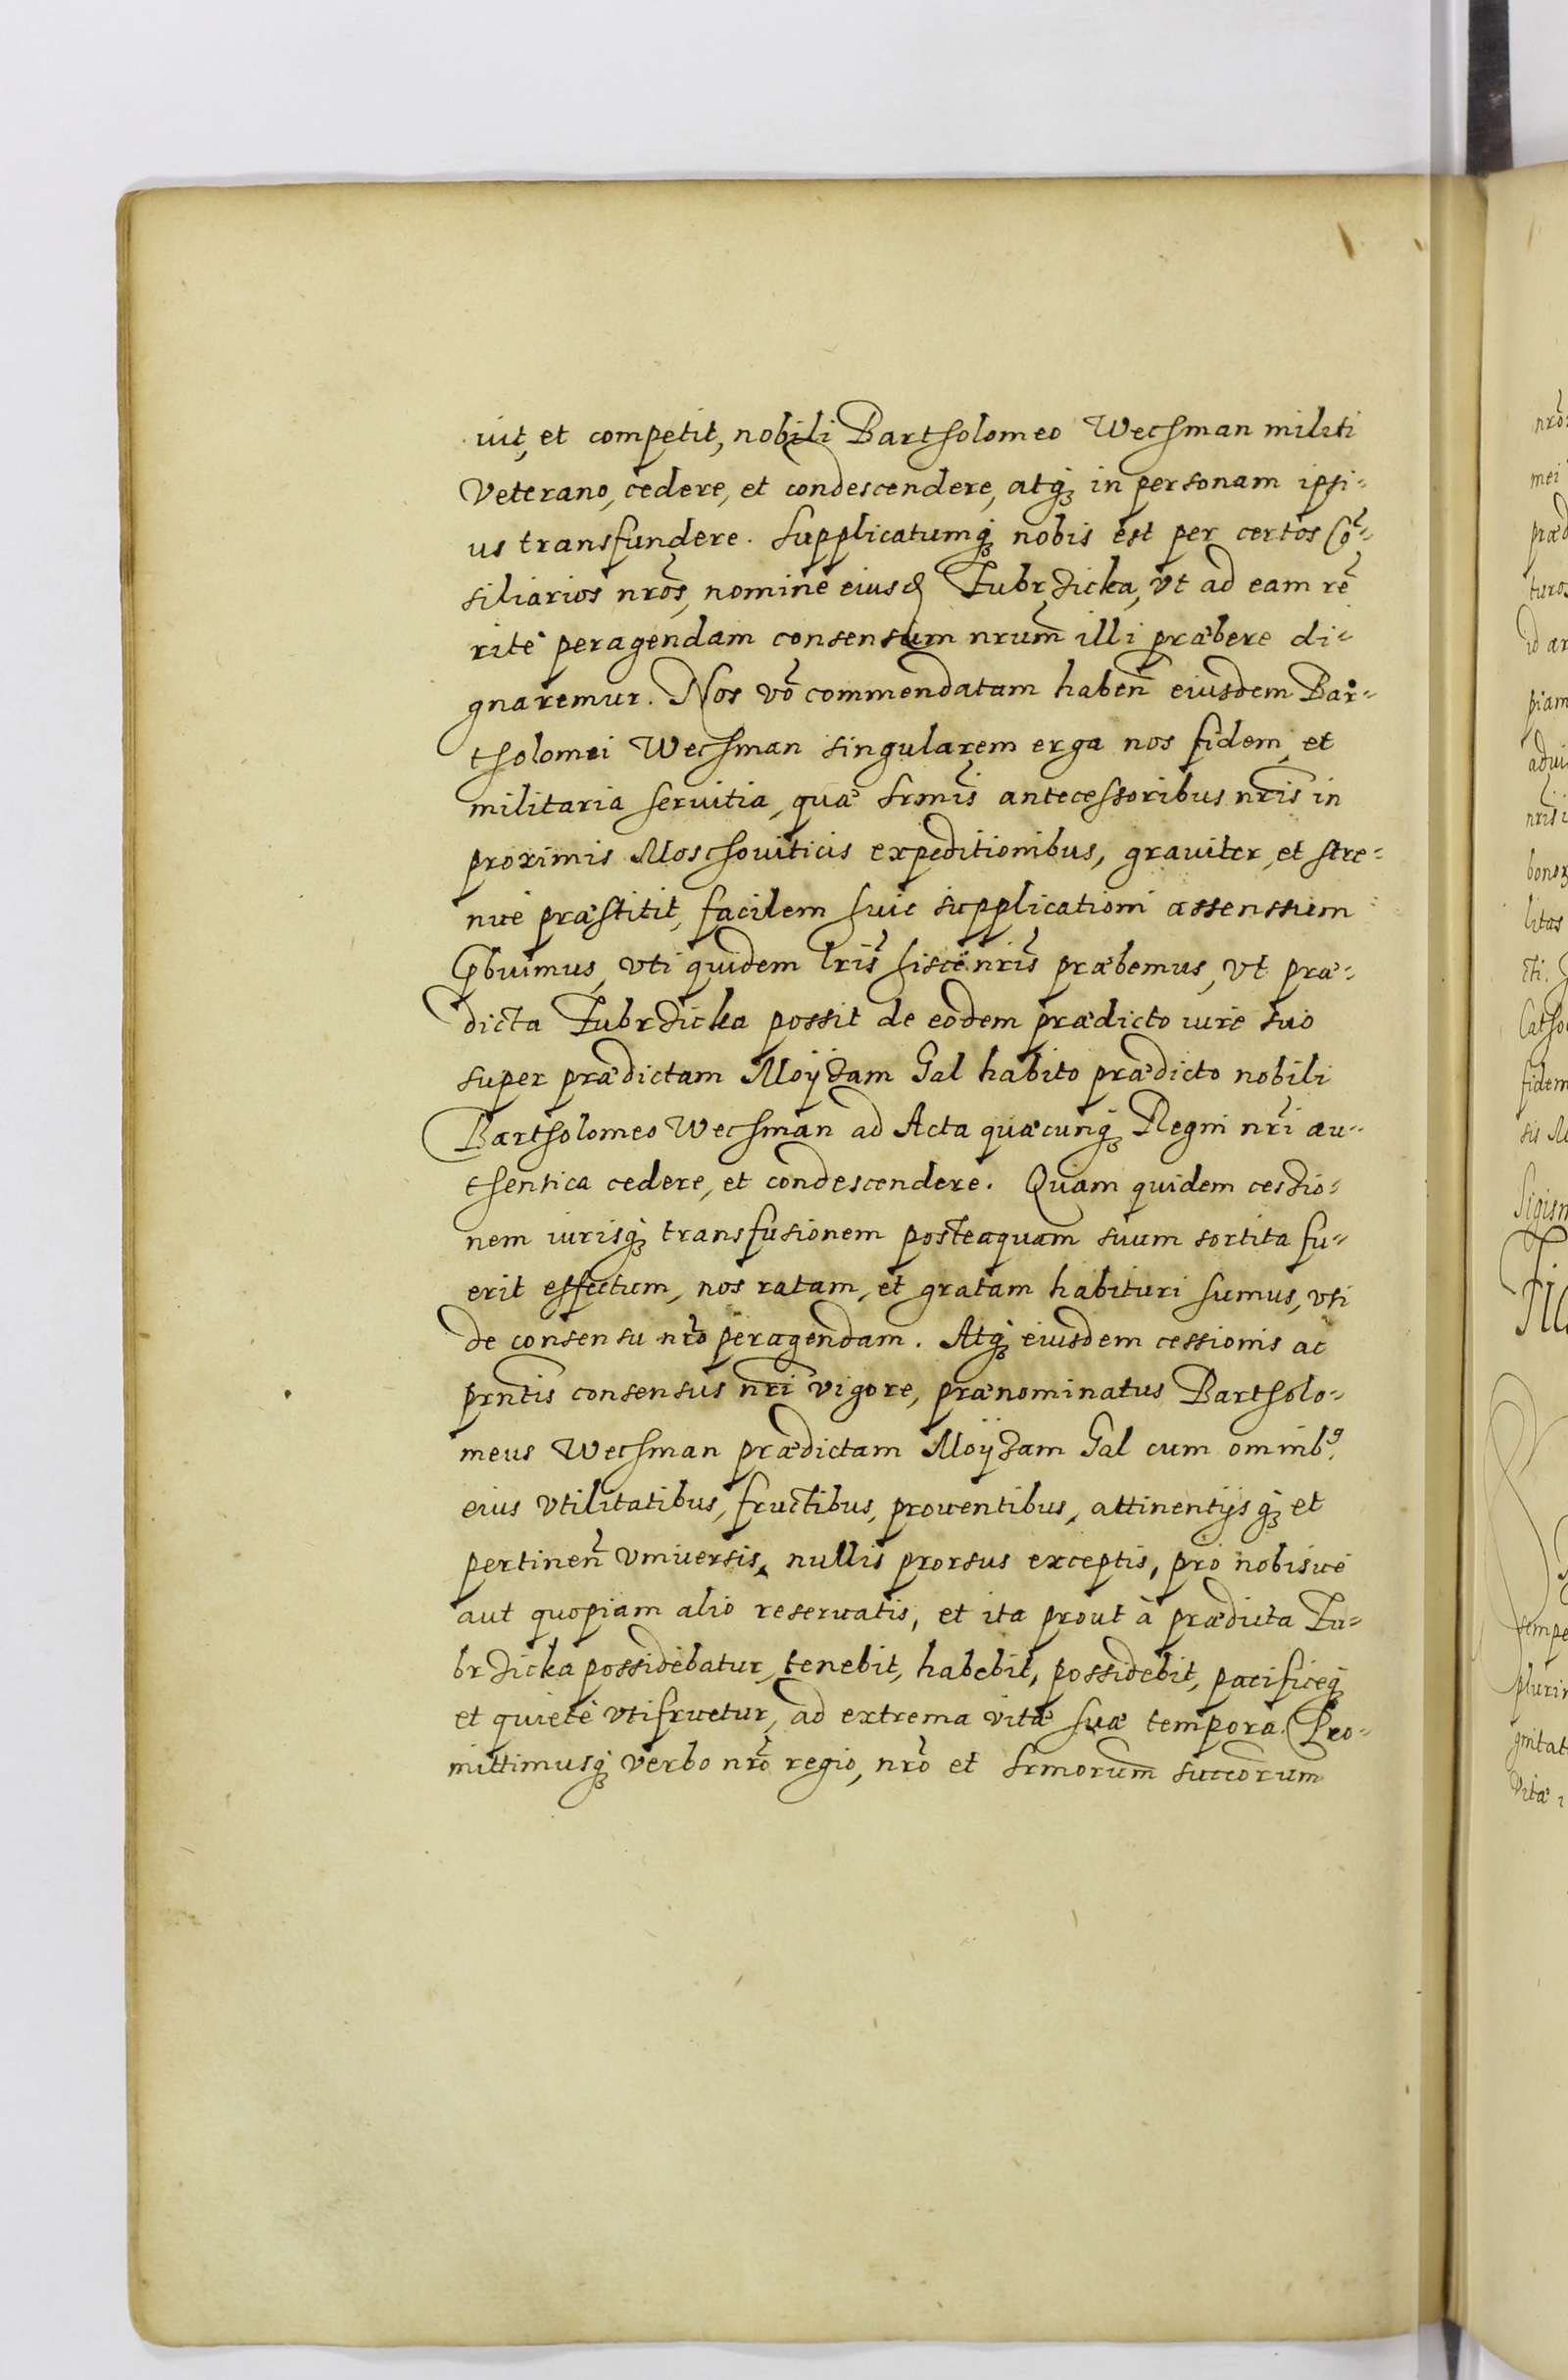 uit, et competit, nobili Bartholomeo Wechman militi
Veterano, cedere, et condescendere, atq́ꝫ in personam ipsi-
us transfundere. Supplicatumq́ꝫ nobis est per certos Cō-
siliarios nrōs, nomine eiusđ Tubrzicka, vt ad eam rē
ritè peragendam consensum nrūm illi præbere di-
gnaremur. Nos vō commendatam habeñ eiusdem Bar-
tholomei Wechman singularem erga nos fidem, et
militaria seruitia, quæ Srmīs antecessoribus nrīs in
proximis Moschouiticis expeditionibus, grauiter, et stre-
nuè præstitit, facilem huic supplicationi assensum
p̄buimus, vti quidem lrīs hiscè nrīs præbemus, vt præ-
dicta Tubrzicka possit de eodem prædicto iure suo
super prædictam Moÿzam Gal habito prædicto nobili
Bartholomeo Wechman ad Acta quæcunq́ꝫ Regni nrī au-
thentica cedere, et condescendere. Quam quidem cessio-
nem iurisq́ꝫ transfusionem posteaquam suum sortita fu-
erit effectum, nos ratam, et gratam habituri sumus, vti
de consensu nrō peragendam. Atq́ꝫ eiusdem cessionis ac
prn̄tis consensus nrī vigore, prænominatus Bartholo-
meus Wechman prædictam Moÿzam Gal cum omnibꝰ
eius vtilitatibus, fructibus, prouentibus, attinentijsq́ꝫ et
pertineñ vniuersis, nullis prorsus exceptis, pro nobisuè
aut quopiam alio reseruatis, et ita prout à prædicta Tu-
brzicka possidebatur, tenebit, habebit, possidebit, pacificeq́ꝫ
et quietè vtifruetur, ad extrema vitæ suæ tempora. Pro-
mittimusq́ꝫ verbo nrō regio, nrō et Srmorum̄ succōrum